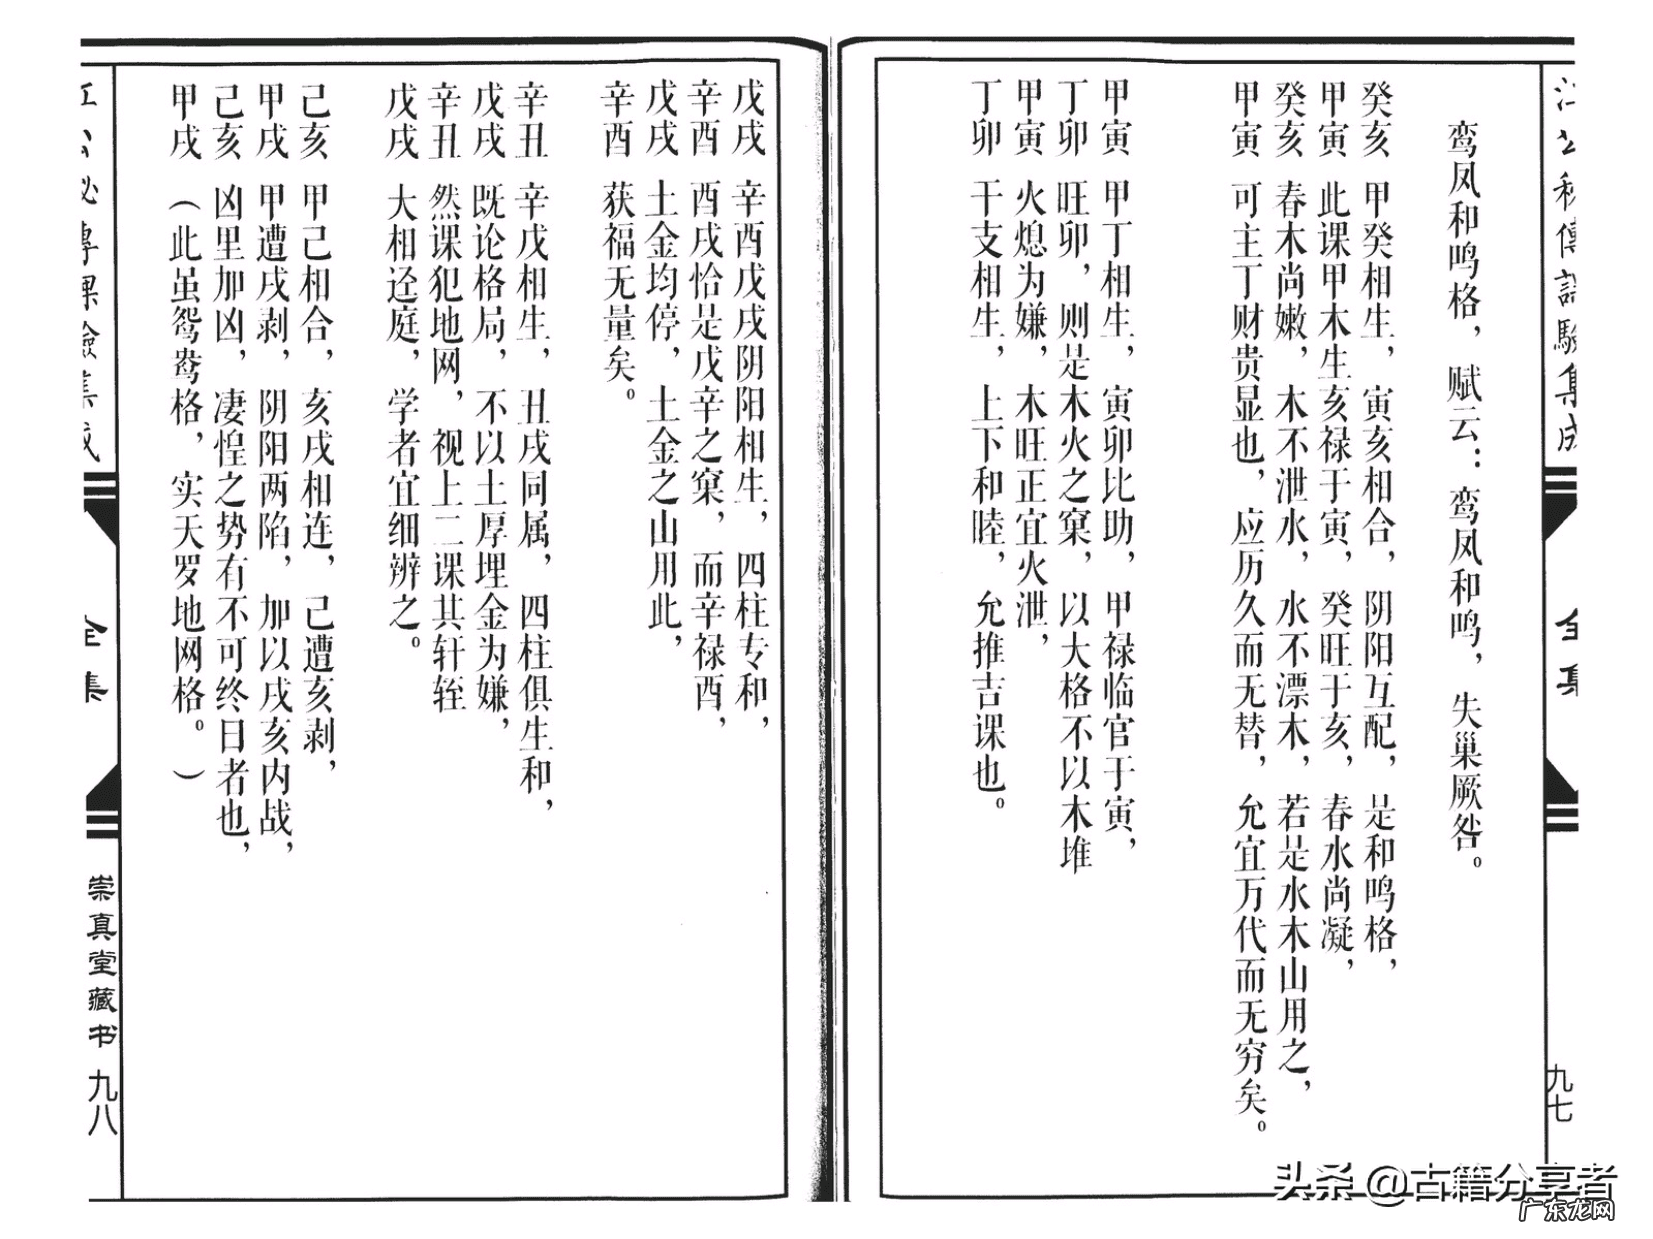 江公秘傳課驗集成
全集
九七
鸾凤和鸣格，赋云：鸾凤和鸣，失巢厥咎。
癸亥　甲癸相生，寅亥相合，阴阳互配，是和鸣格，
甲寅　此课甲木生亥禄于寅，癸旺于亥，春水尚凝，
癸亥　春木尚嫩，木不泄水，水不漂木，若是水木山用之，
甲寅　可主丁财贵显也，应历久而无替，允宜万代而无穷矣。
甲寅　甲丁相生，寅卯比助，甲禄临官于寅，
丁卯　旺卯，则是木火之窠，以大格不以木堆
甲寅　火熄为嫌，木旺正宜火泄，
丁卯　干支相生，上下和睦，允推吉课也。
戊戌　辛酉戊戌阴阳相生，四柱专和，
辛酉　酉戌恰是戊辛之窠，而辛禄酉，
戊戌　土金均停，土金之山用此，
辛酉　获福无量矣。
辛丑　辛戊相生，丑戌同属，四柱俱生和，
戊戌　既论格局，不以土厚埋金为嫌，
辛丑　然课犯地网，视上二课其轩轾
戊戌　大相迳庭，学者宜细辨之。
己亥　甲己相合，亥戌相连，己遭亥剥，
甲戌　甲遭戌剥，阴阳两陷，加以戌亥内战，
己亥　凶里加凶，凄惶之势有不可终日者也，
甲戌　（此虽鸳鸯格，实天罗地网格。）
江公秘專課驗集成
全集
崇真堂藏书
九八
头条 @古籍分享者
广东龙网